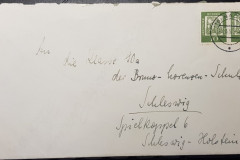 An die Klasse 10a
der Bruno-Lorenzen-Schule
Schleswig
Spielkoppel 6
Schleswig-Holstein